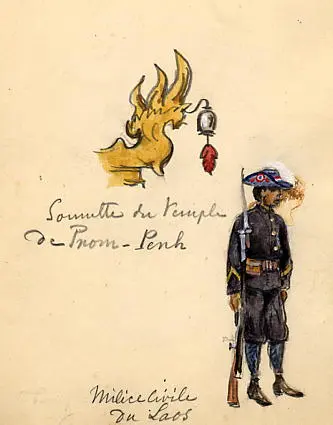 Sonnette du Temple
de Pnom-Penh
Milice Civile
du Laos